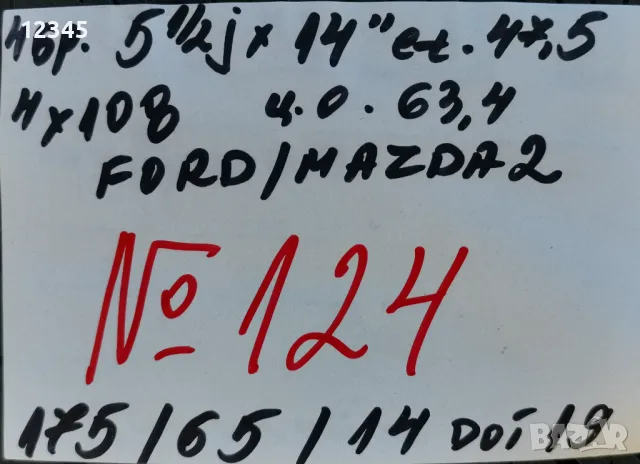 12345
4 бр. 5 1/2j x 14" et. 47,5
4x108 ц.о. 63,4
FORD/MAZDA 2
№ 124
175/65/14 DOT 19
BAZAR